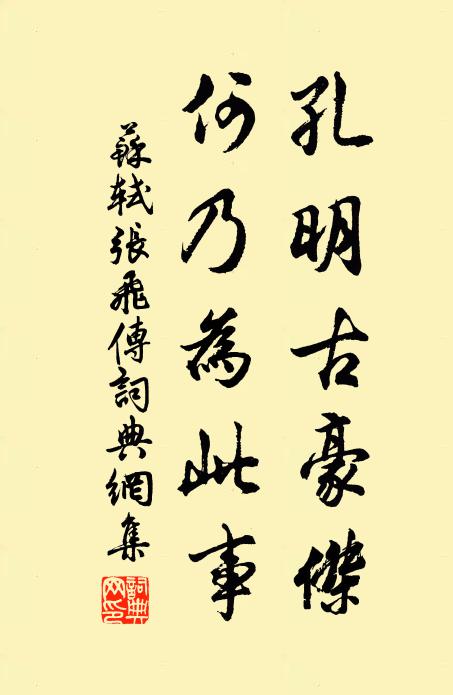 孔明古豪傑
何乃為此事
蘇軾張飛傳詞典網集
詞典
网印